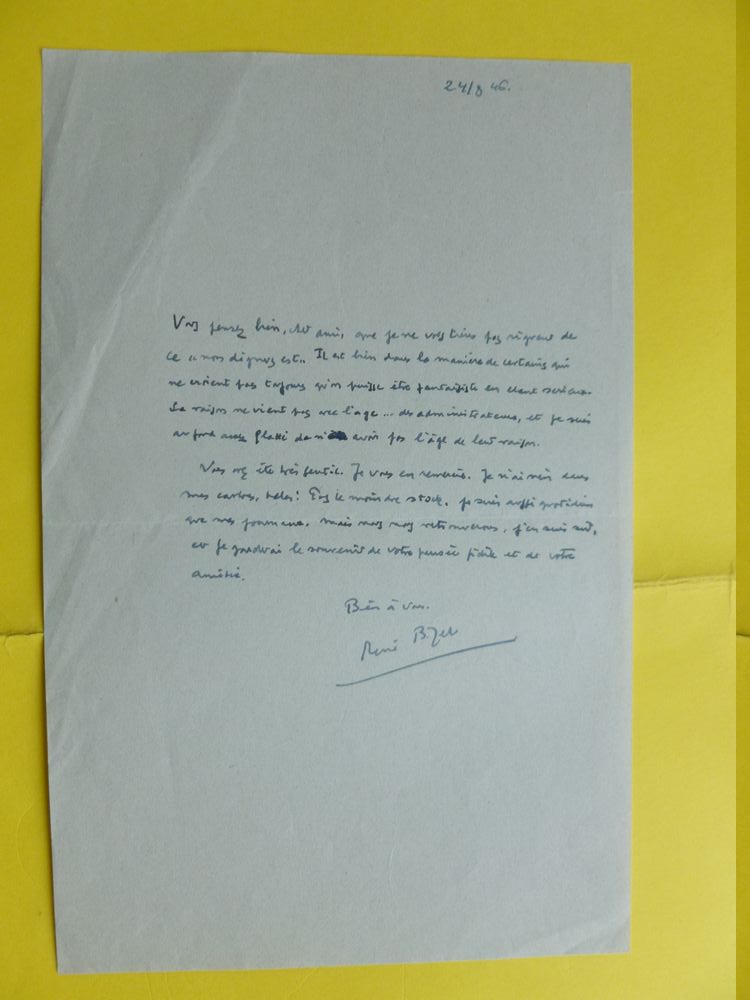 24/8 46.
Vous pensez bien, cher ami, que je ne vous tiens pas rigueur de
ce « non dignus est ». Il est bien dans la manière de certains qui
ne croient pas toujours qu'on puisse être fantaisiste en étant sérieux.
La raison ne vient pas avec l'âge ... des administrateurs, et je suis
au fond assez flatté de n' avoir pas l'âge de leur raison.
Vous avez été très gentil. Je vous en remercie. Je n'ai rien dans
mes cartons, hélas! Pas le moindre stock. Je suis aussi quotidien
que mes journaux, mais nous nous retrouverons, j'en suis sûr,
et je garderai le souvenir de votre pensée fidèle et de votre
amitié.
Bien à vous.
René Bizet